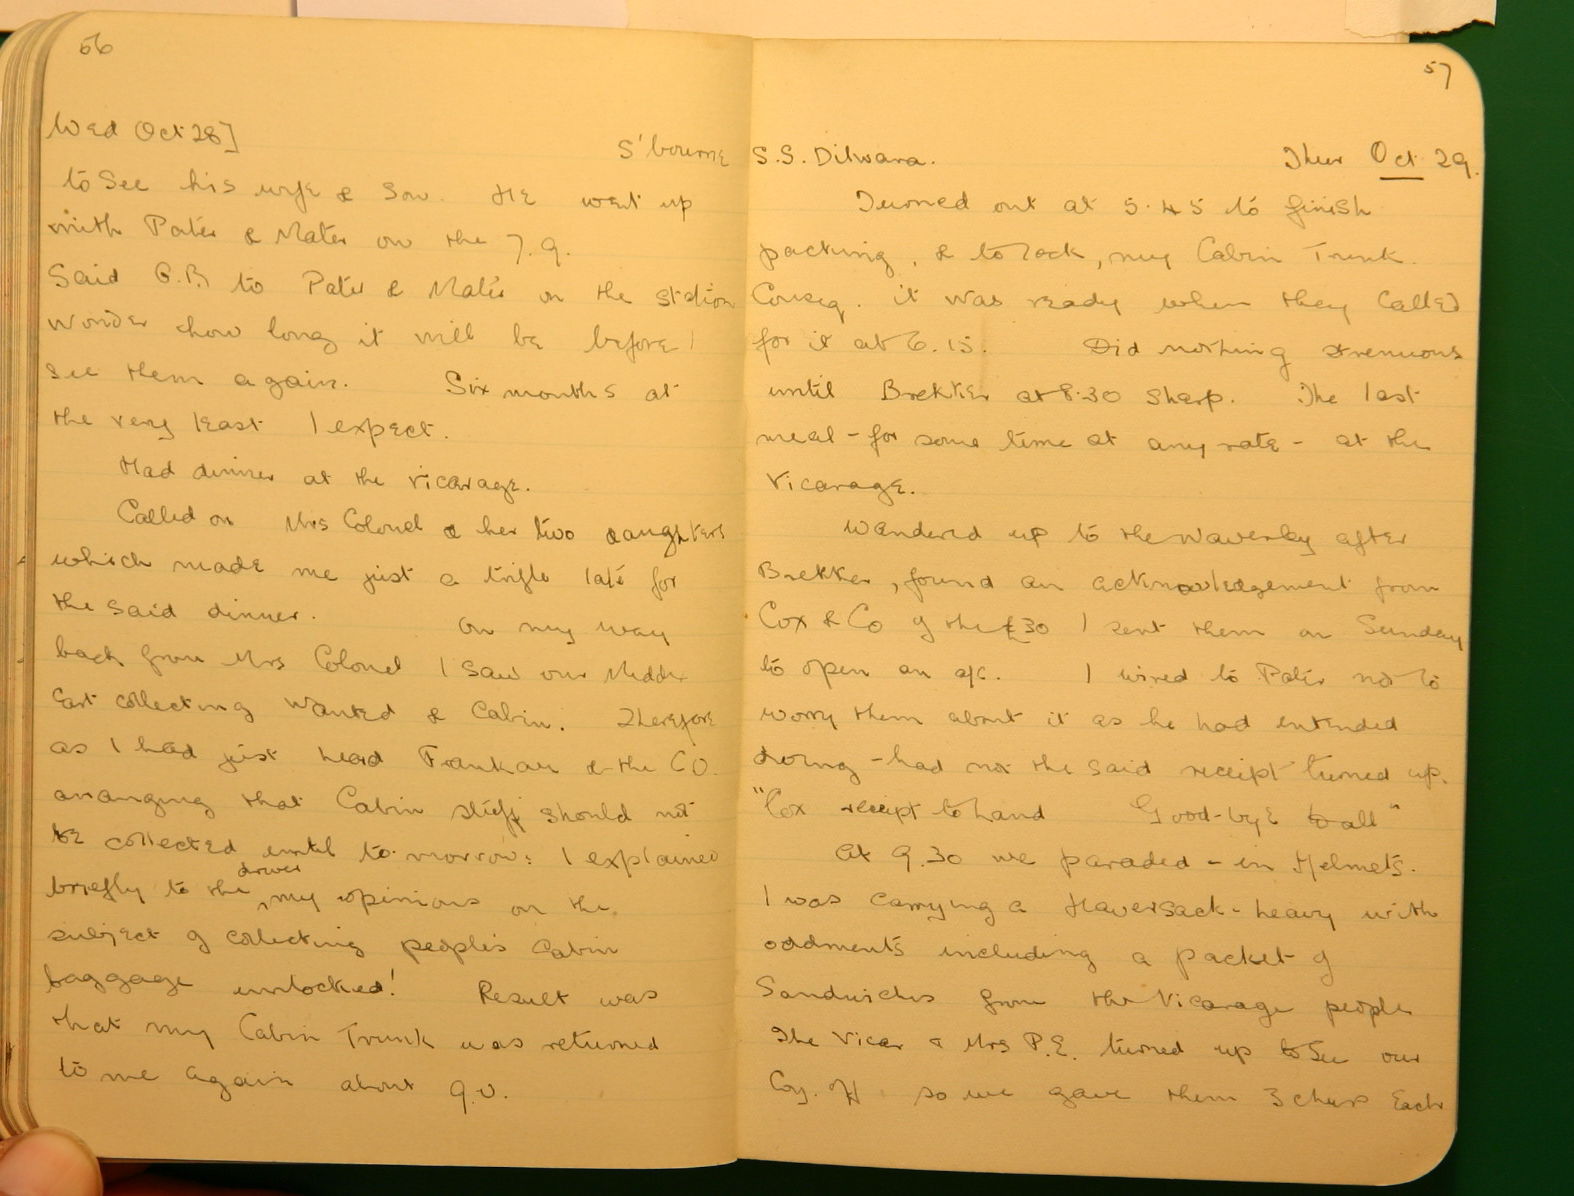 56
Wed Oct 28]
S'bourne
to see his wife & son. He went up
with Pater & Mater on the 7.9.
Said G.B. to Pater & Mater on the station
wonder how long it will be before I
see them again. Six months at
the very least I expect.
Had dinner at the Vicarage.
Called on Mrs Colonel & her two daughters
which made me just a trifle late for
the said dinner. On my way
back from Mrs Colonel I saw our
Cart collecting Wanted & Cabin. Therefore
as I had just heard & the CO.
arranging that Cabin stuff should not
be collected until to-morrow: I explained
driver
briefly to the ^ my opinions on the
subject of collecting people's Cabin
baggage unlocked! Result was
that my Cabin Trunk was returned
to me again about 9.0.
57
S.S. Dilwara. Thur Oct 29.
Turned out at 5.45 to finish
packing, & to lock, my Cabin Trunk.
Conseq. it was ready when they called
for it at 6.15. Did nothing strenuous
until Brekker at 8.30 sharp. The last
meal - for some time at any rate - at the
Vicarage.
Wandered up to the Waverley after
Brekker, found an acknowledgement from
Cox & Co of the £30 I sent them on Sunday
to open an a/c. I wired to Pater not to
worry them about it as he had intended
doing - had not the said receipt turned up.
"Cox receipt to hand Good-bye to all"
At 9.30 we paraded - in Helmets.
I was carrying a Haversack - heavy with
oddments including a packet of
Sandwiches from the Vicarage people
The Vicar & Mrs P.E. turned up to see our
Coy. so we gave them 3 cheers each